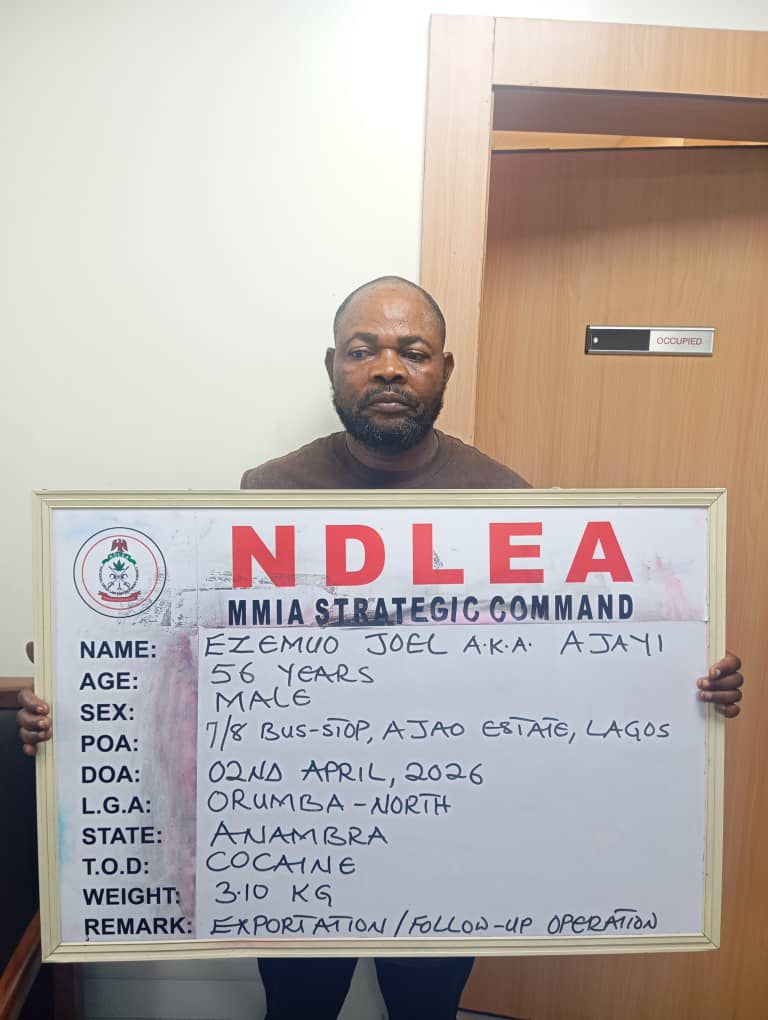 OCCUPIED
NDLEA
MMIA STRATEGIC COMMAND
NAME: EZEMUO JOEL A.K.A. AJAYI
AGE: 56 YEARS
SEX: MALE
POA: 7/8 BUS-STOP, AJAO ESTATE, LAGOS
DOA: 02ND APRIL, 2026
L.G.A: ORUMBA-NORTH
STATE: ANAMBRA
T.O.D: COCAINE
WEIGHT: 3.10 KG
REMARK: EXPORTATION/FOLLOW-UP OPERATION